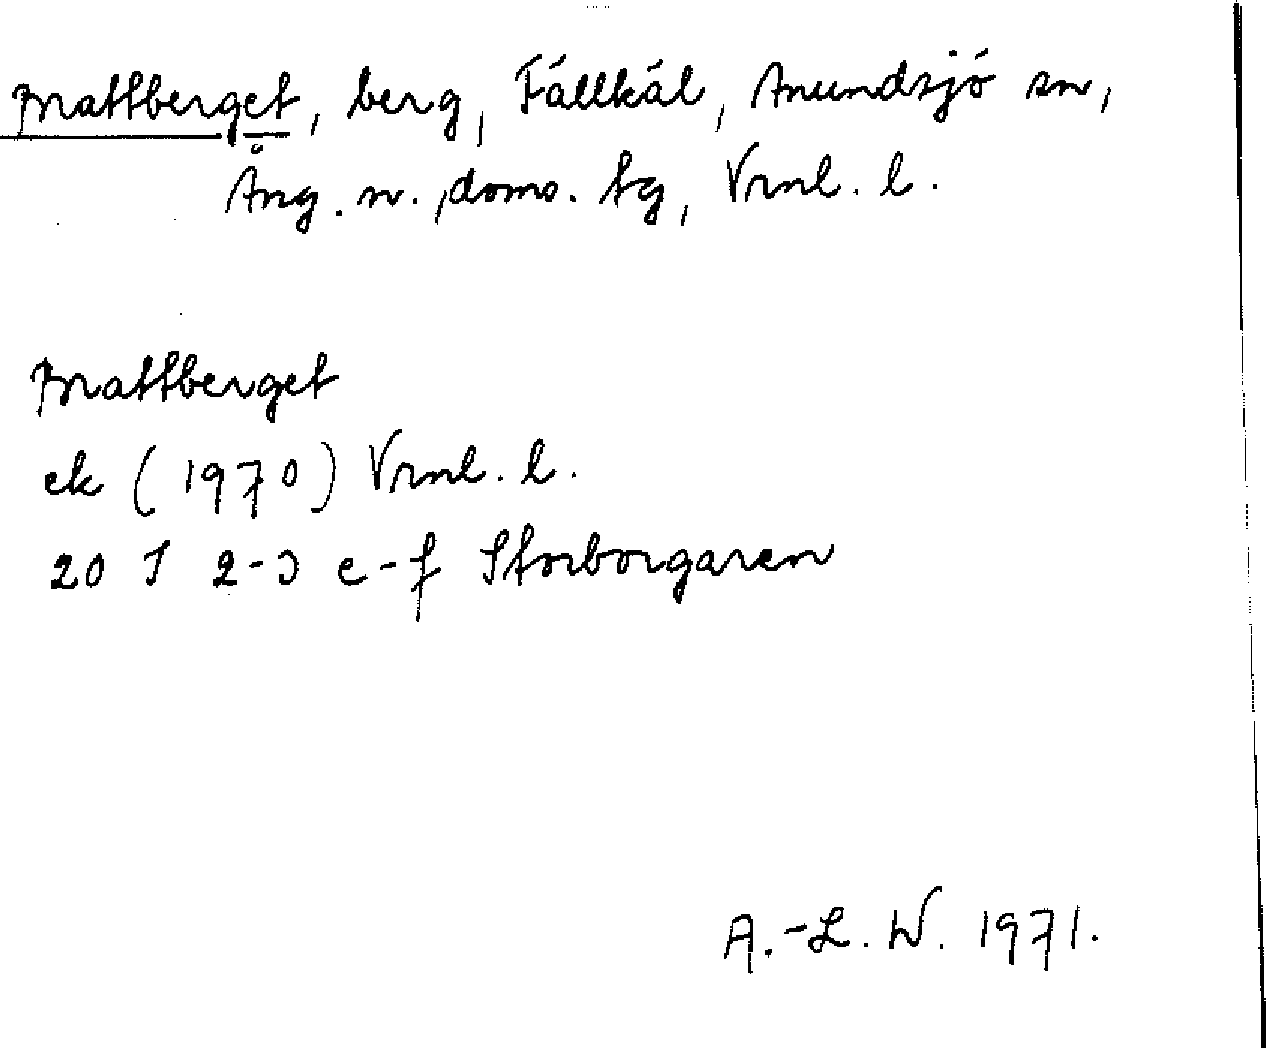 Brattberget, berg, Fällkäl, Anundsjö sn,
Ång. n. doms. tg, Vrnl. l.
Brattberget
ek (1970) Vrnl. l.
20 I 2-3 e-f Storborgaren
A.-L. W. 1971.